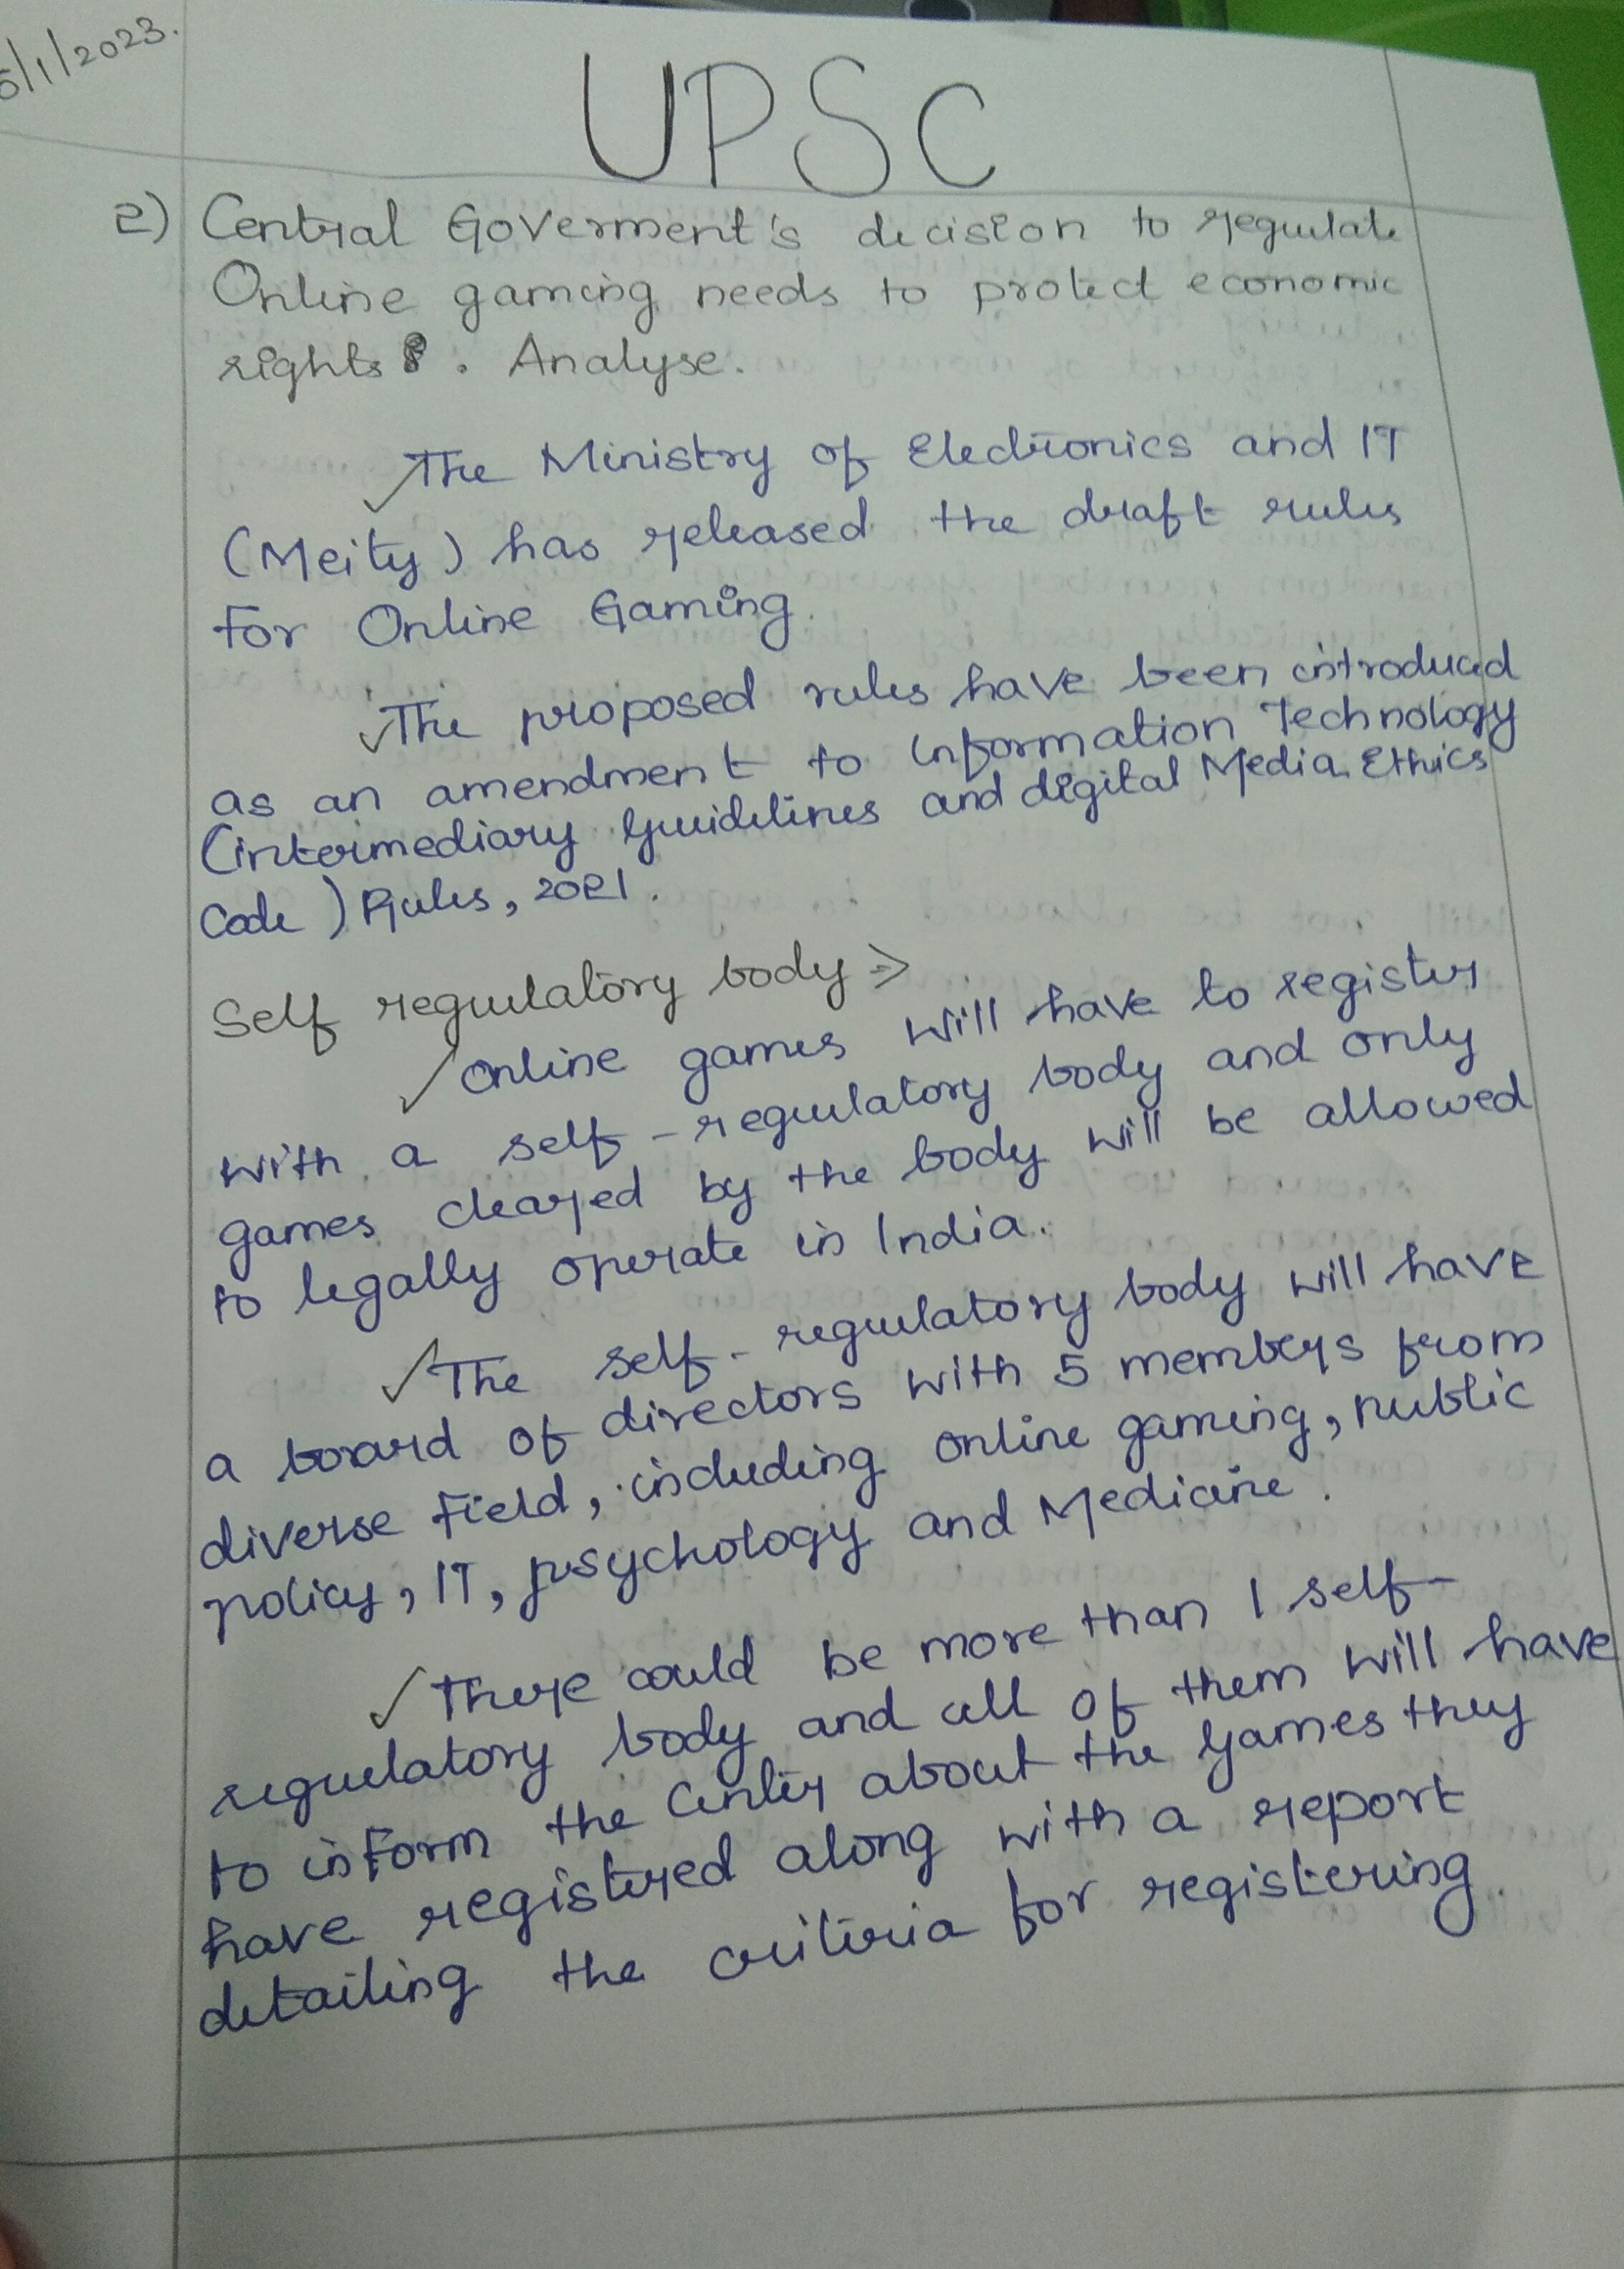 5/1/2023.
UPSC
2) Central Goverment's decision to regulate
Online gaming needs to protect economic
rights . Analyse.
The Ministry of Electronics and IT
(Meity) has released the draft rules
for Online Gaming.
The proposed rules have been introduced
as an amendment to Information Technology
(intermediary guidelines and digital Media Ethics
Code) Rules, 2021.
Self regulatory body ⇒
Online games will have to register
with a self-regulatory body and only
games cleared by the body will be allowed
to legally operate in India.
The self-regulatory body will have
a board of directors with 5 members from
diverse field, including online gaming, public
policy, IT, psychology and Medicine.
There could be more than 1 self-
regulatory body and all of them will have
to inform the Center about the games they
have registered along with a report
detailing the criteria for registering.